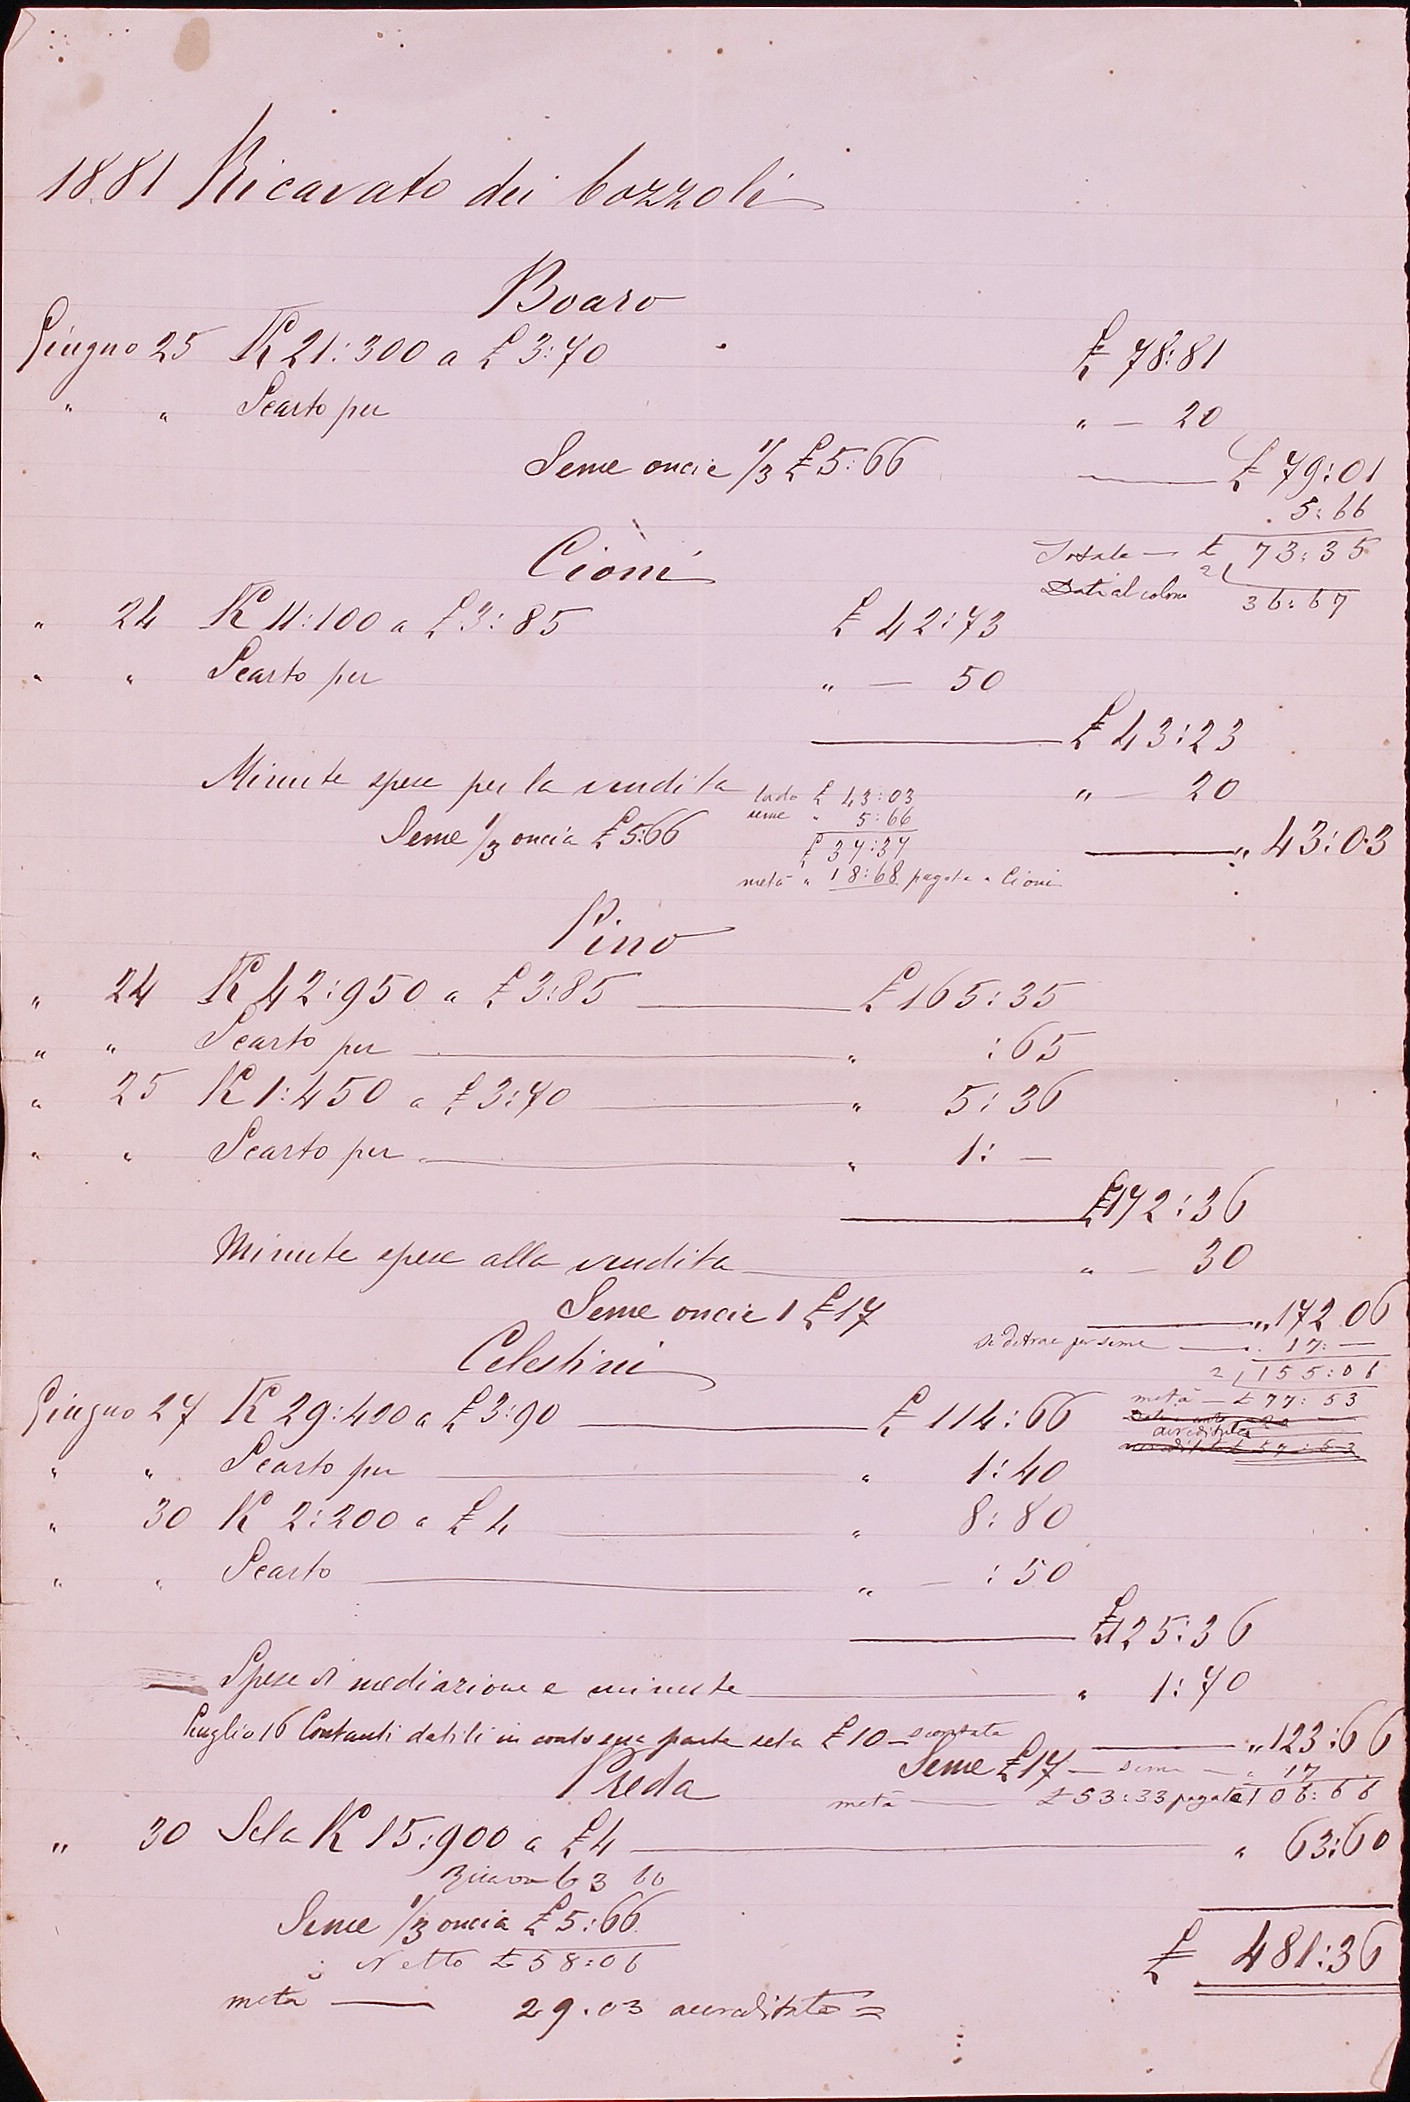 1881 Ricavato dei bozzoli
Boaro
Giugno 25 K 21:300 a £ 3:70 £ 78:81
" " Scarto per " — 20
Seme oncie 1/3 £ 5:66 £ 79:01
5:66
Totale — £ 73:35
Dati al colono 2 36:67
Cioni
" 24 K 11:100 a £ 3:85 £ 42:73
" " Scarto per " — 50
£ 43:23
Minute spese per la vendita " — 20
£ 43:03
seme " 5:66
Seme 1/3 oncia £ 5:66 " 43:03
£ 37:37
metà " 18:68 pagata a Cioni
Pino
" 24 K 42:950 a £ 3:85 £ 165:35
" " Scarto per " :65
" 25 K 1:450 a £ 3:70 " 5:36
" " Scarto per " 1: —
£ 172:36
Minute spese alla vendita " — 30
Seme oncie 1 £ 17 " 172.06
si detrae per seme — 17: —
2 155:06
Celestini
metà — £ 77:53
Giugno 27 K 29:400 a £ 3:90 £ 114:66
accreditate
" " Scarto per " 1:40
" 30 K 2:200 a £ 4 " 8:80
" " Scarto " — :50
£ 125:36
Spese di mediazione e minute " 1:70
Luglio 16 Contanti datili in conto sua parte seta £ 10 — scontate " 123:66
Seme £ 17 — seme — " 17
Preda
metà — £ 53:33 pagate 106:66
" 30 Seta K 15:900 a £ 4 " 63:60
63 60
Seme 1/3 oncia £ 5:66
Netto £ 58:06
£ 481:36
metà — 29.03 accreditate =